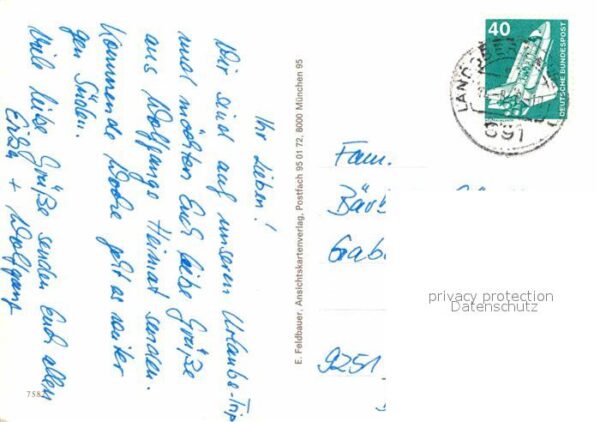 Ihr Lieben!
Wir sind auf unserem Urlaubs-Trip
und möchten Euch liebe Grüße
aus Wolfgangs Heimat senden.
Kommende Woche geht es weiter
gen Süden.
Viele liebe Grüße senden Euch allen
Erika + Wolfgang
758
E. Feldbauer, Ansichtskartenverlag, Postfach 95 01 72, 8000 München 95
40
DEUTSCHE BUNDESPOST
Fam.
9251
privacy protection
Datenschutz